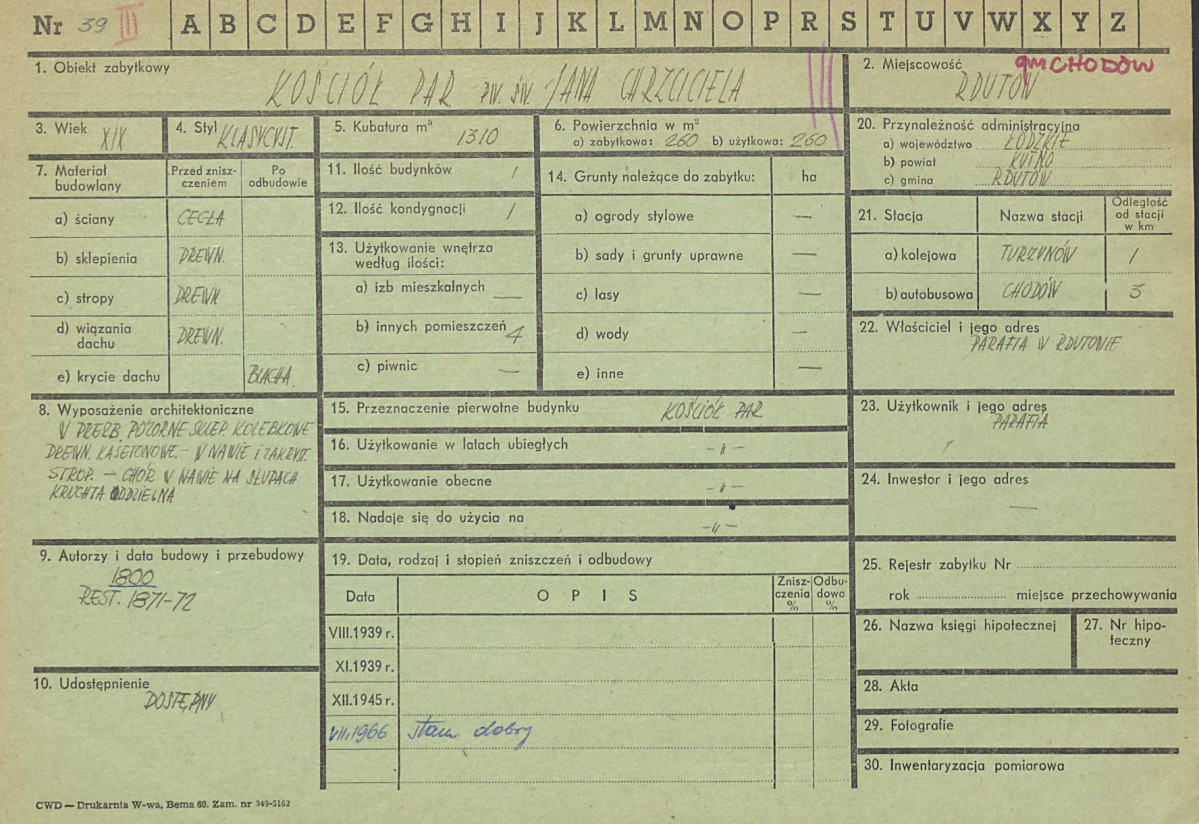 Nr 39 III A B C D E F G H I J K L M N O P R S T U V W X Y Z
1. Obiekt zabytkowy
KOŚCIÓŁ PAR PW. ŚW. JANA CHRZCICIELA
2. Miejscowość
gm CHODÓW
RDUTÓW
3. Wiek XIX
4. Styl KLASYCYST.
5. Kubatura m³ 1310
6. Powierzchnia w m²
a) zabytkowa: 260 b) użytkowa: 260
20. Przynależność administracyjna
a) województwo ŁÓDZKIE
b) powiat KUTNO
c) gmina RDUTÓW
7. Materiał budowlany
Przed zniszczeniem
Po odbudowie
a) ściany CEGŁA
b) sklepienia DREWN.
c) stropy DREWN
d) wiązania dachu DREWN.
e) krycie dachu BLACHA
11. Ilość budynków 1
12. Ilość kondygnacji 1
13. Użytkowanie wnętrza
według ilości:
a) izb mieszkalnych —
b) innych pomieszczeń 4
c) piwnic —
14. Grunty należące do zabytku: ha
a) ogrody stylowe —
b) sady i grunty uprawne —
c) lasy —
d) wody —
e) inne —
21. Stacja Nazwa stacji Odległość od stacji w km
a) kolejowa TURZYNÓW 1
b) autobusowa CHODÓW 5
22. Właściciel i jego adres
PARAFIA W RDUTOWIE
8. Wyposażenie architektoniczne
W PREZB. POZORNE SKLEP. KOLEBKOWE
DREWN. KASETONOWE. – W NAWIE I ZAKRYST.
STROP. – CHÓR W NAWIE NA SŁUPACH
KRUCHTA ODDZIELNA
15. Przeznaczenie pierwotne budynku KOŚCIÓŁ PAR
16. Użytkowanie w latach ubiegłych – „ –
17. Użytkowanie obecne – „ –
18. Nadaje się do użycia na – „ –
23. Użytkownik i jego adres
PARAFIA
24. Inwestor i jego adres
—
9. Autorzy i data budowy i przebudowy
1800
REST. 1871-72
10. Udostępnienie
DOSTĘPNY
19. Data, rodzaj i stopień zniszczeń i odbudowy
Data OPIS Zniszczenia % Odbudowa %
VIII.1939 r.
XI.1939 r.
XII.1945 r.
VII.1966 stan dobry
25. Rejestr zabytku Nr
rok miejsce przechowywania
26. Nazwa księgi hipotecznej
27. Nr hipoteczny
28. Akta
29. Fotografie
30. Inwentaryzacja pomiarowa
CWD — Drukarnia W-wa, Bema 60. Zam. nr 349-5162